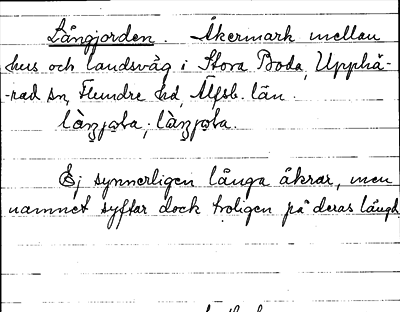 Långjorden. Åkermark mellan
hus och landsväg i Stora Boda, Upphä-
-rad sn, Flundre hd, Älfsb. län.
Ej synnerligen långa åkrar, men
namnet syftar dock troligen på deras längd